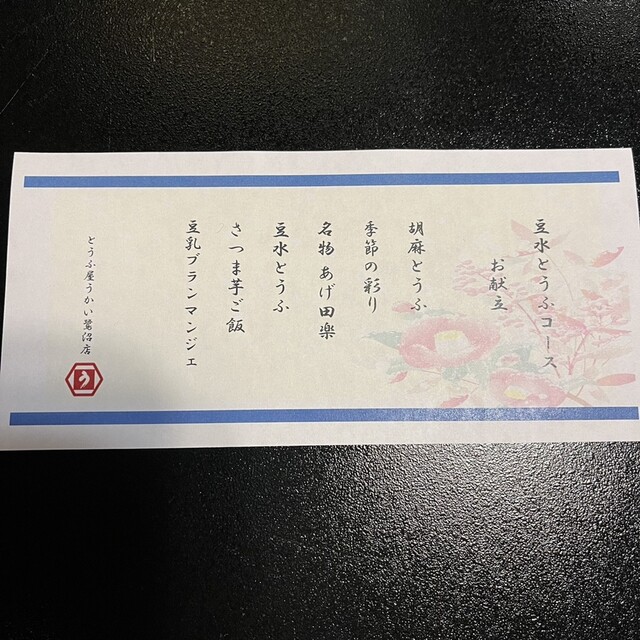 豆水とうふコース
お献立
胡麻とうふ
季節の彩り
名物あげ田楽
豆水とうふ
さつま芋ご飯
豆乳ブランマンジェ
とうふ屋うかい鷺沼店
う